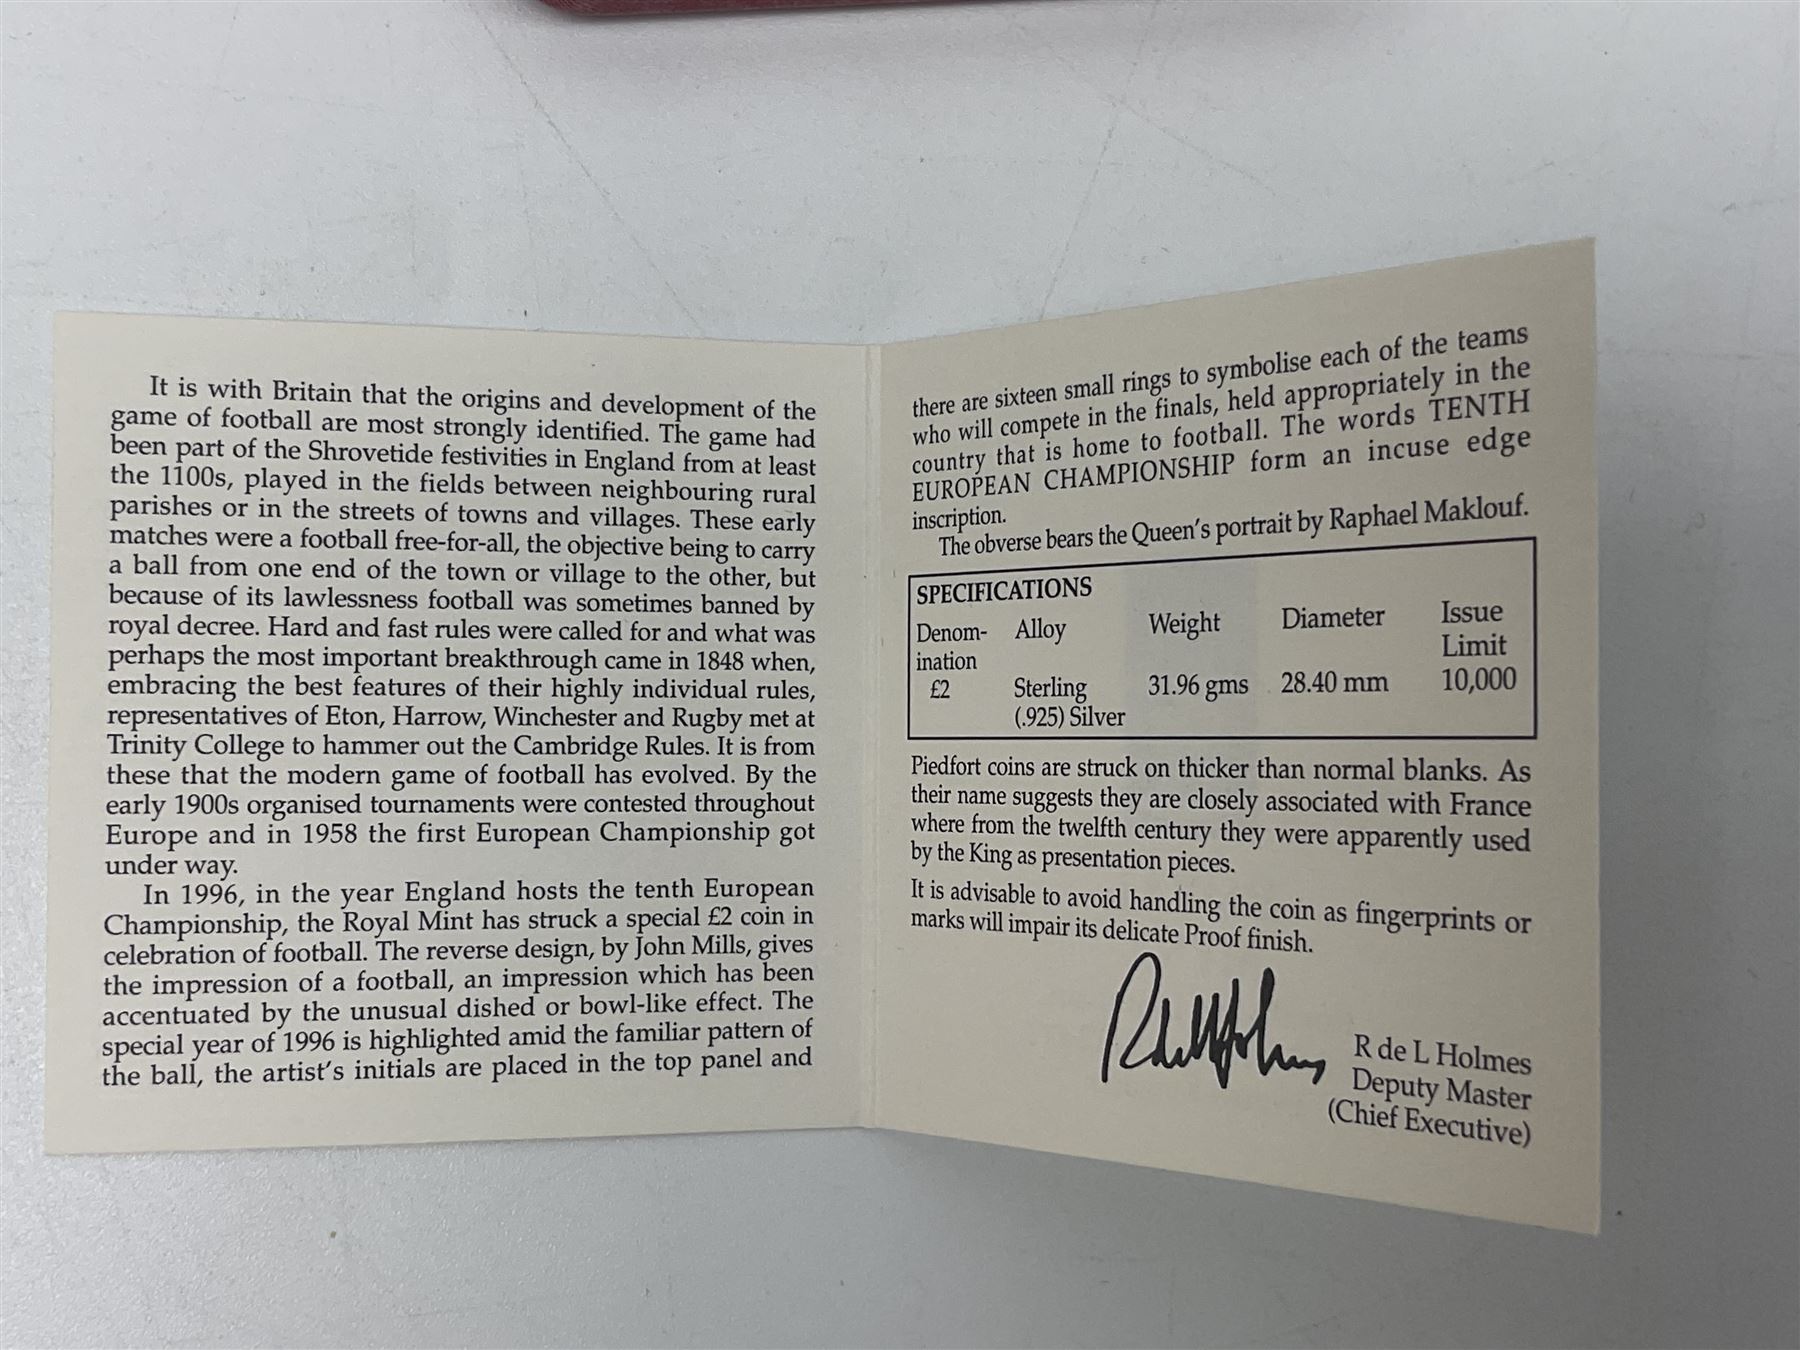 It is with Britain that the origins and development of the
game of football are most strongly identified. The game had
been part of the Shrovetide festivities in England from at least
the 1100s, played in the fields between neighbouring rural
parishes or in the streets of towns and villages. These early
matches were a football free-for-all, the objective being to carry
a ball from one end of the town or village to the other, but
because of its lawlessness football was sometimes banned by
royal decree. Hard and fast rules were called for and what was
perhaps the most important breakthrough came in 1848 when,
embracing the best features of their highly individual rules,
representatives of Eton, Harrow, Winchester and Rugby met at
Trinity College to hammer out the Cambridge Rules. It is from
these that the modern game of football has evolved. By the
early 1900s organised tournaments were contested throughout
Europe and in 1958 the first European Championship got
under way.
In 1996, in the year England hosts the tenth European
Championship, the Royal Mint has struck a special £2 coin in
celebration of football. The reverse design, by John Mills, gives
the impression of a football, an impression which has been
accentuated by the unusual dished or bowl-like effect. The
special year of 1996 is highlighted amid the familiar pattern of
the ball, the artist's initials are placed in the top panel and
there are sixteen small rings to symbolise each of the teams
who will compete in the finals, held appropriately in the
country that is home to football. The words TENTH
EUROPEAN CHAMPIONSHIP form an incuse edge
inscription.
The obverse bears the Queen's portrait by Raphael Maklouf.
SPECIFICATIONS
Denom- Alloy Weight Diameter Issue
ination Limit
£2 Sterling 31.96 gms 28.40 mm 10,000
(.925) Silver
Piedfort coins are struck on thicker than normal blanks. As
their name suggests they are closely associated with France
where from the twelfth century they were apparently used
by the King as presentation pieces.
It is advisable to avoid handling the coin as fingerprints or
marks will impair its delicate Proof finish.
R de L Holmes
Deputy Master
(Chief Executive)